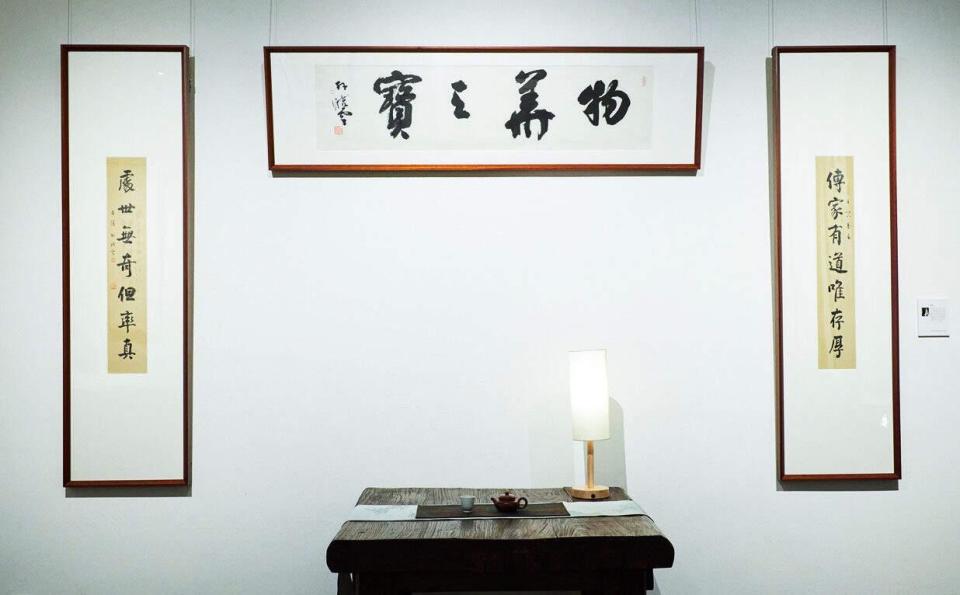 物華天寶
傳家有道唯存厚
處世無奇但率真